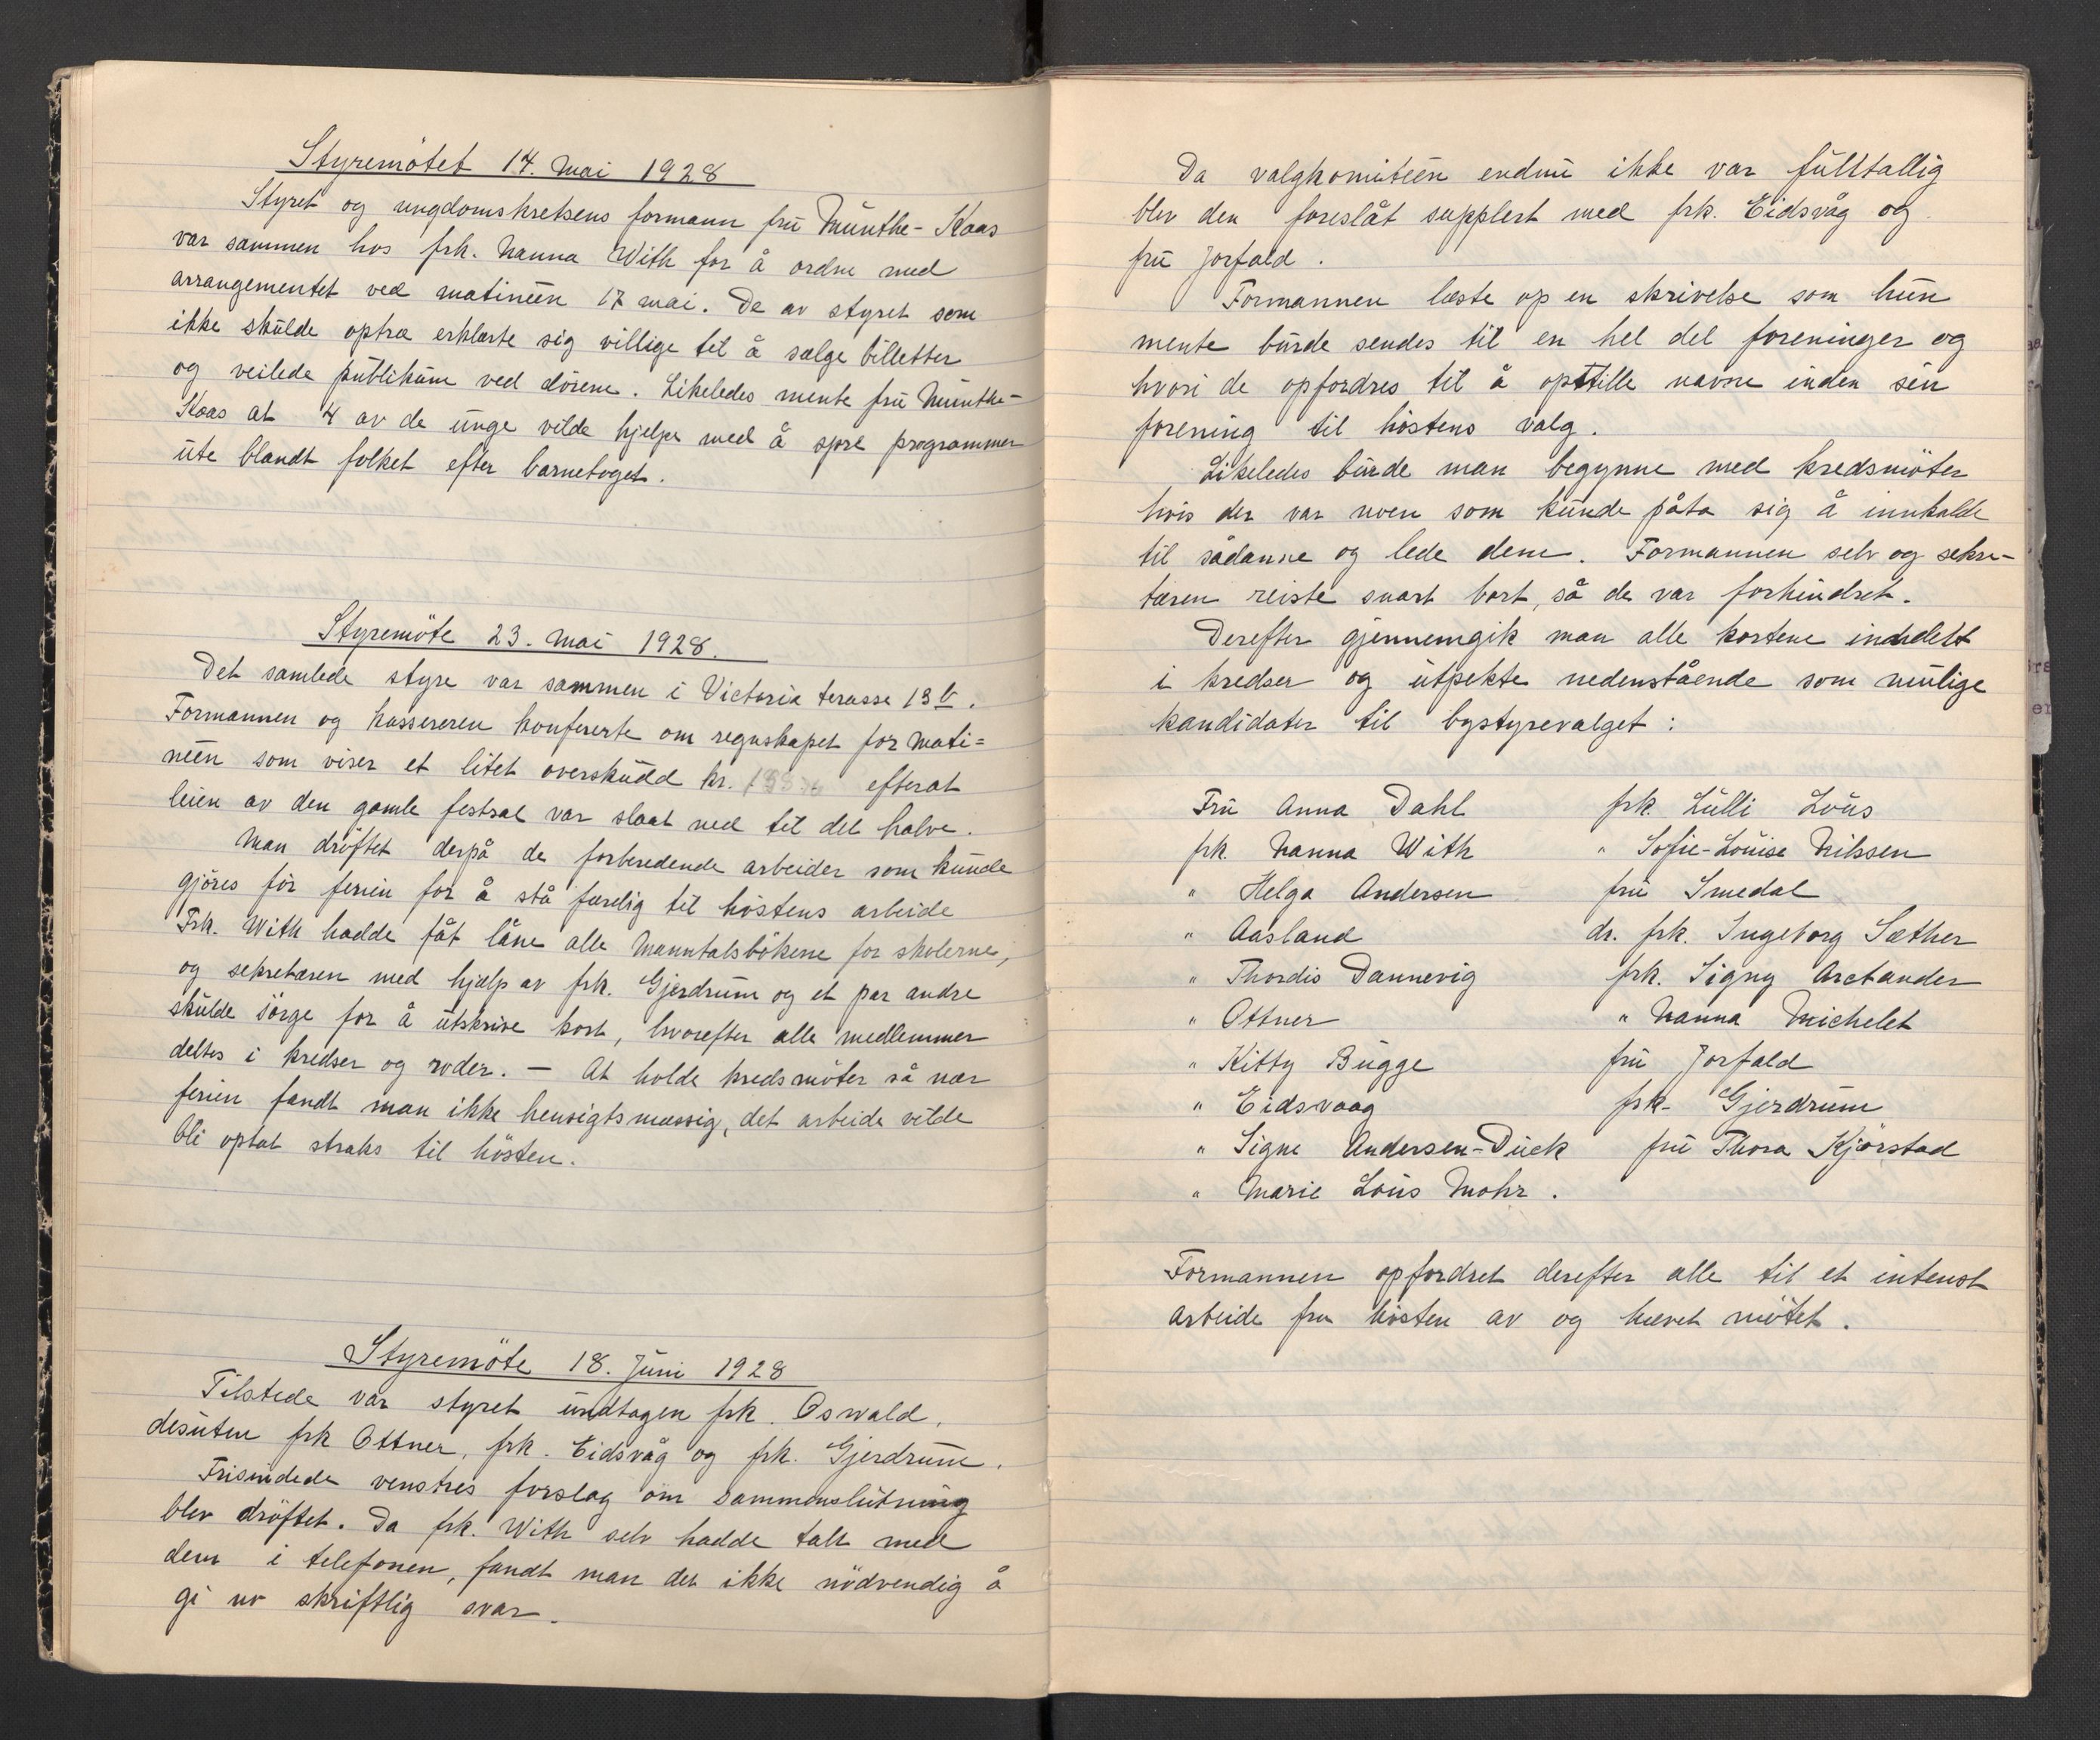 Styremötet 14. Mai 1928
Styret og ungdomskretsens formann frü Münthe-Kaas
var sammen hos frk. Nanna With for å ordne med
arrangementet ved matinéen 17 mai. De av styret som
ikke skülde optræ erklærte sig villige til å sælge billetter
og veilede püblikum ved dörene. Likeledes mente frü Münthe-
Kaas at 4 av de ünge vilde hjelpe med å spre programmer
üte blandt folket efter barnetoget.
Styremöte 23. Mai 1928.
Det samlede styre var sammen i Victoria terasse 13 b.
Formannen og kassereren konfererte om regnskapet for Mati=
néen som viser et litet overskudd kr. efterat
leien av den gamle festsal var slaat ned til det halve.
Man dröftet derpå de forberedende arbeider som künde
gjöres för ferien for å stå færdig til höstens arbeide
Frk. With hadde fåt låne alle Manntalsbökene for skolerne,
og sekretæren med hjælp av frk. Gjerdrüm og et par andre
skülde sörge for å ütskrive kort, hvorefter alle medlemmer
deltes i kredser og roder. — At holde kredsmöter så nær
ferien fandt man ikke hensigtsmæssig, det arbeide vilde
bli optat straks til hösten.
Styremöte 18. Jüni 1928
Tilstede var styret ündtagen frk. Oswald,
desüten frk Ottner, frk. Eidsvåg og frk. Gjerdrüm.
Frisindede venstres forslag om sammenslütning
blev dröftet. Da frk. With selv hadde talt med
dem i telefonen, fandt man det ikke nödvendig å
gi nv skriftlig svar.
Da valgkomitéen endnü ikke var fülltallig
blev den foreslåt supplert med frk. Eidsvåg og
frü Jorfald.
Formannen læste op en skrivelse som hün
mente bürde sendes til en hel del foreninger og
hvori de opfordres til å opstille navne inden sin
forening til höstens valg.
Likeledes bürde man begynne med kredsmöter
hvis der var noen som künde påta sig å innkalde
til sådanne og lede dem. Formannen selv og sekre-
tæren reiste snart bort, så de var forhindret.
Derefter gjennemgik man alle kortene inddelt
i kredser og ütpekte nedenstående som mülige
kandidater til bystyrevalget:
Frü Anna Dahl frk. Lülli Loüs
frk. Nanna With " Sofie-Loüise Nilssen
" Helga Andersen frü Smedal
" Aasland dr. frk. Ingeborg Sæther
" Thordis Dannevig frk. Signy Arctander
" Ottner " Nanna Michelet
" Kitty Bügge frü Jorfald
" Eidsvaag frk. Gjerdrüm
" Signe Andersen-Dück frü Thora Kjörstad
" Marie Loüs Mohr.
Formannen opfordret derefter alle til et intenst
arbeide fra hösten av og hævet mötet.